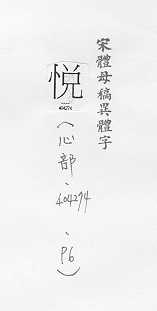 宋體母稿異體字
悅
404274
(心部、404274、P6)